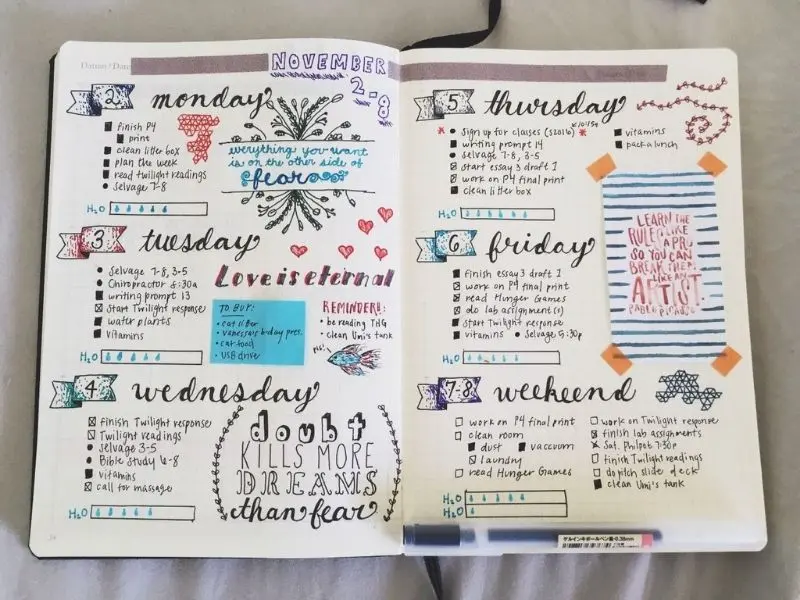 NOVEMBER
2-8
2 monday
finish P4
print
clean litter box
plan the week
read twilight readings
Selvage 7-8
H2O
everything you want
is on the other side of
fear
3 tuesday
Selvage 7-8, 3-5
Chiropractor 8:30a
writing prompt 13
Start Twilight response
water plants
vitamins
H2O
Love is eternal
TO BUY:
cat litter
vanessa's b-day pres.
cat food
USB drive
REMINDERS:
be reading THG
clean Umi's tank
4 wednesday
finish Twilight response
Twilight readings
Selvage 3-5
Bible Study 6-8
vitamins
call for massage
H2O
doubt
KILLS MORE
DREAMS
than fear
5 thursday
Sign up for classes (S2016)
writing prompt 14
Selvage 7-8, 3-5
Start essay 3 draft 1
work on P4 final print
clean litter box
vitamins
pack a lunch
H2O
LEARN THE
RULES LIKE
A PRO
SO YOU CAN
BREAK THEM
LIKE AN
ARTIST.
PABLO PICASSO
6 friday
finish essay 3 draft 1
work on P4 final print
read Hunger Games
do lab assignment(s)
Start Twilight response
vitamins Selvage 5:30p
H2O
7-8 weekend
work on P4 final print
clean room
dust vaccuum
laundry
read Hunger Games
work on Twilight response
finish lab assignments
Sat. Philpot 7:30p
finish Twilight readings
do pitch slide deck
clean Umi's tank
H2O
H2O
0.38mm